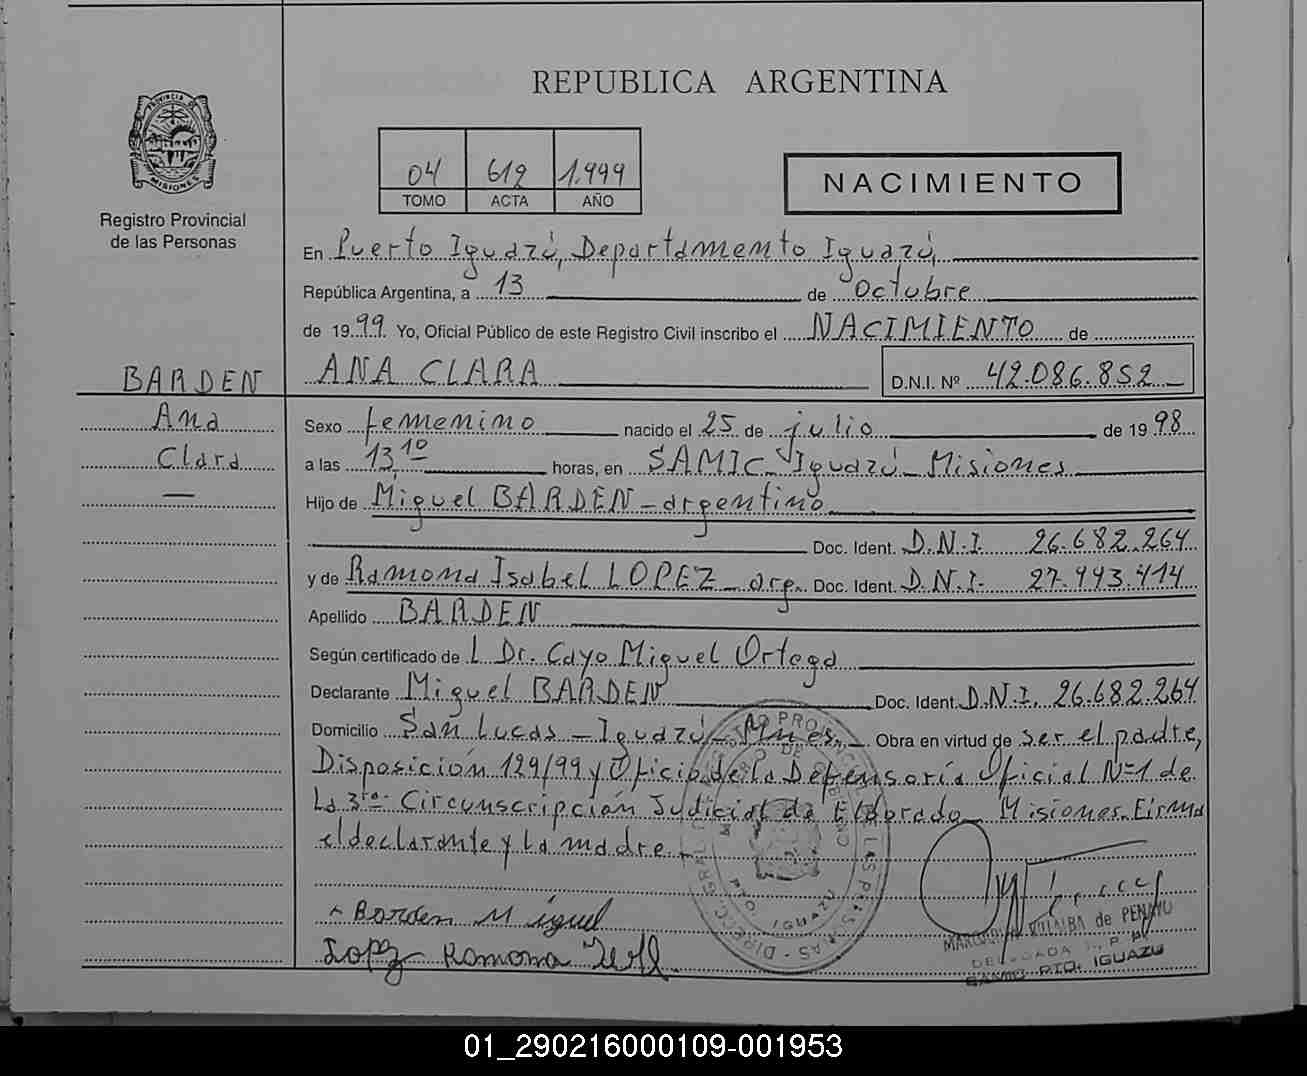 REPUBLICA ARGENTINA
PROVINCIA DE
MISIONES
Registro Provincial
de las Personas
04 612 1.999
TOMO ACTA AÑO
NACIMIENTO
En Puerto Iguazú, Departamento Iguazú,
República Argentina, a 13 de octubre
de 1999 Yo, Oficial Público de este Registro Civil inscribo el NACIMIENTO de
BARDEN
ANA CLARA D.N.I. Nº 42.086.852
Ana
Clara
Sexo femenino nacido el 25 de julio de 1998
a las 13,10 horas, en SAMIC - Iguazú - Misiones
Hijo de Miguel BARDEN - argentino
Doc. Ident. D.N.I. 26.682.264
y de Ramona Isabel LOPEZ - arg. Doc. Ident. D.N.I. 27.443.414
Apellido BARDEN
Según certificado de L Dr. Cayo Miguel Ortega
Declarante Miguel BARDEN Doc. Ident. D.N.I. 26.682.264
Domicilio San Lucas - Iguazú - Mnes. Obra en virtud de ser el padre,
Disposición 129/99 y Oficio de la Defensoría Oficial Nº1 de
La 3ra. Circunscripción Judicial de Eldorado - Misiones. Firma
el declarante y La madre.
Barden Miguel
Lopez Ramona
VILLALBA de PENAYO
DELEGADA R. P. P.
SAMIC PTO. IGUAZU
01_290216000109-001953